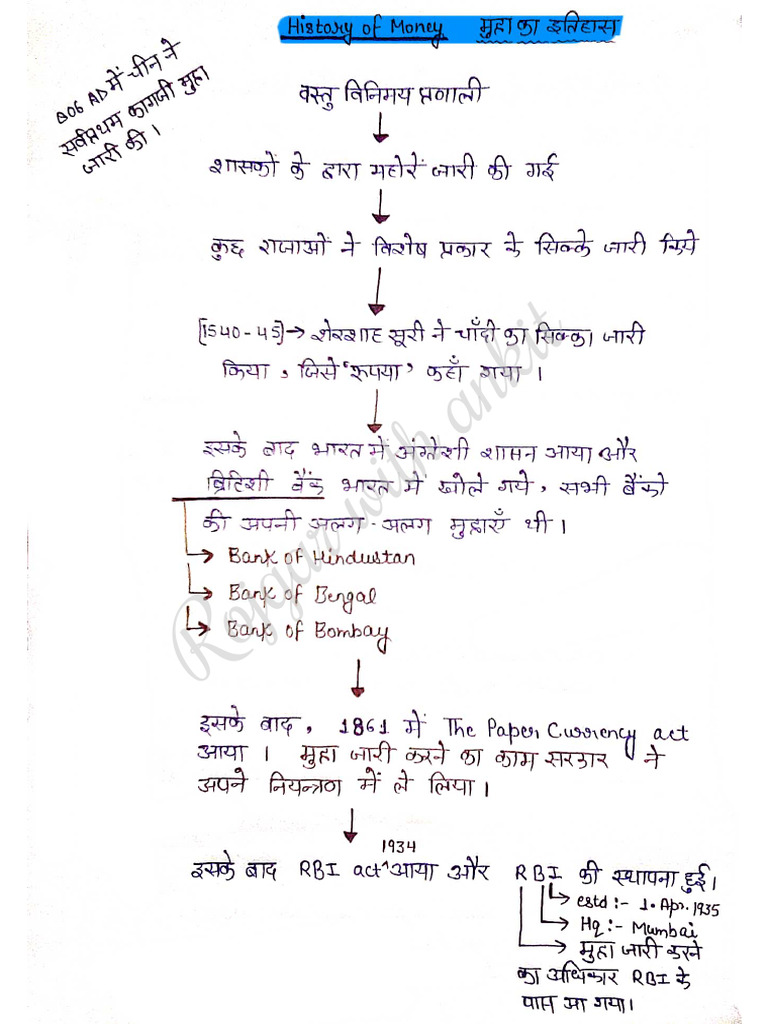 History of Money मुद्रा का इतिहास
806 AD में चीन ने
सर्वप्रथम कागजी मुद्रा
जारी की ।
वस्तु विनिमय प्रणाली
शासकों के द्वारा महोरें जारी की गई
कुछ राजाओं ने विशेष प्रकार के सिक्के जारी किये
[1540-45]→ शेरशाह सूरी ने चाँदी का सिक्का जारी
किया , जिसे 'रूपया' कहाँ गया ।
इसके बाद भारत में अंग्रेजी शासन आया और
ब्रिटिशी बैंक भारत में खोले गये, सभी बैंको
की अपनी अलग-अलग मुद्राएँ थी ।
→ Bank of Hindustan
→ Bank of Bengal
→ Bank of Bombay
इसके बाद , 1861 में The Paper Currency act
आया । मुद्रा जारी करने का काम सरकार ने
अपने नियन्त्रण में ले लिया ।
1934
इसके बाद RBI act ^ आया और RBI की स्थापना हुई ।
→ estd :- 1. Apr. 1935
→ Hq :- Mumbai
→ मुद्रा जारी करने
का अधिकार RBI के
पास आ गया ।
Rojgar with ankit